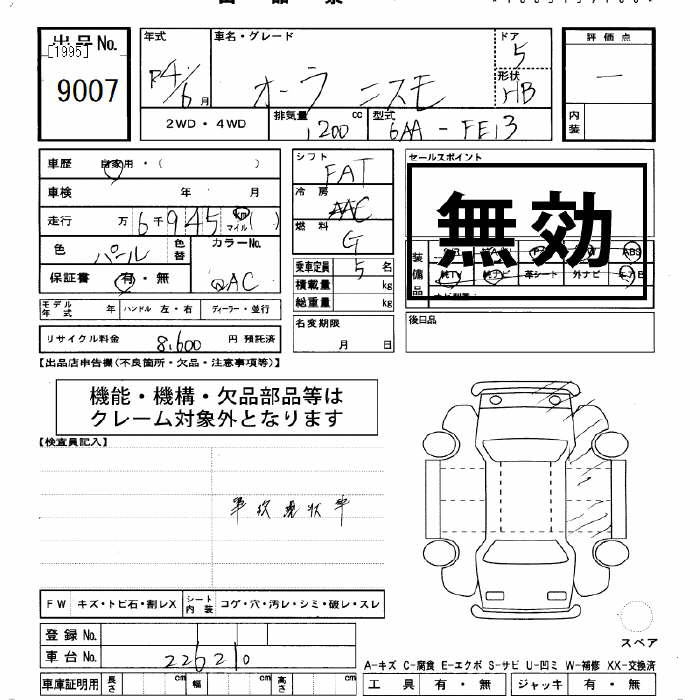 出品No.
[1995]
9007
年式
R4/6月
車名・グレード
オーラ ニスモ
ドア
5
形状
HB
評価点
内装
2WD・4WD
排気量 1200 cc
型式 6AA-FE13
車歴 自家用・( )
車検 年 月
走行 万6千945 km マイル ( )
色 パール 色替
カラーNo. QAC
保証書 有・無
モデル年式 年 ハンドル 左・右 ディーラー・並行
リサイクル料金 8,600 円 預託済
シフト FAT
冷房 AAC
燃料 G
乗車定員 5 名
積載量 kg
総重量 kg
名変期限
月 日
セールスポイント
無効
装備品
ABS
純TV 純ナビ 革シート 外ナビ
後日品
【出品店申告欄(不良箇所・欠品・注意事項等)】
機能・機構・欠品部品等は
クレーム対象外となります
【検査員記入】
事故現状車
FW キズ・トビ石・割レX シート内装 コゲ・穴・汚レ・シミ・破レ・スレ
登録No.
車台No. 226210
車庫証明用 長さ cm 幅 cm 高さ cm
スペア
A-キズ C-腐食 E-エクボ S-サビ U-凹ミ W-補修 XX-交換済
工具 有・無 ジャッキ 有・無